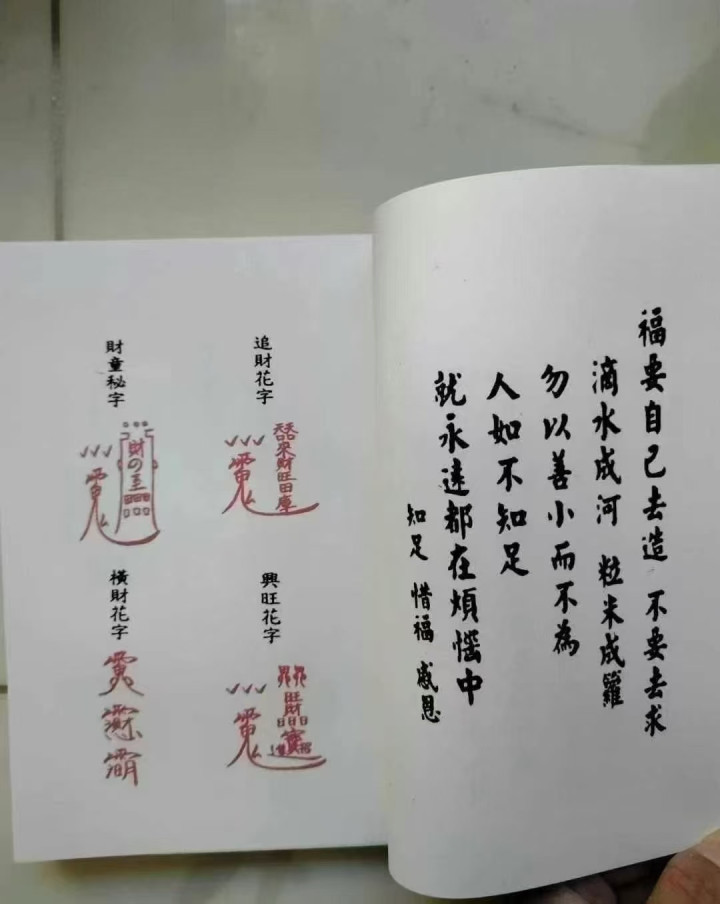 福要自己去造 不要去求
滴水成河 粒米成籮
勿以善小而不為
人如不知足
就永遠都在煩惱中
知足 惜福 感恩
追財花字
財童秘字
財
の
王
來財旺
庫
興旺花字
旺財
橫財花字